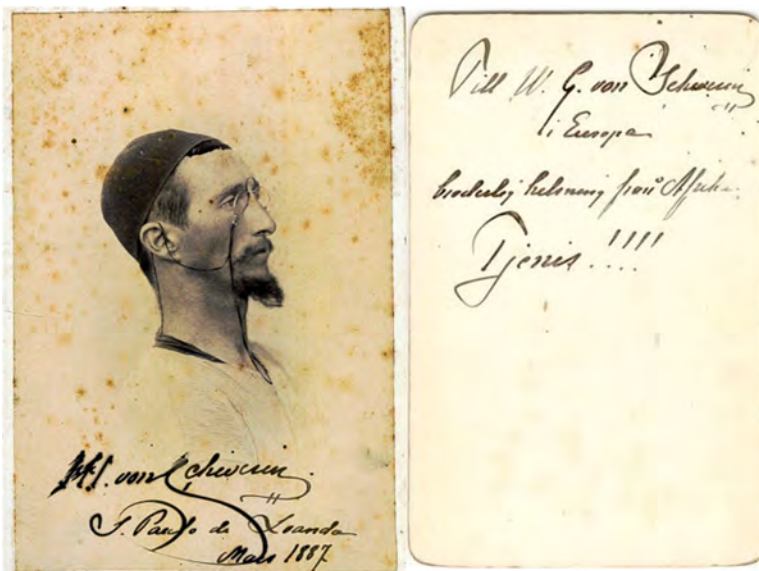 von Schwerin
S. Paulo de Loanda
Mars 1887.
Till W. G. von Schwerin
i Europa
broderlig helsning från Afrika.
Tjenis !!!!